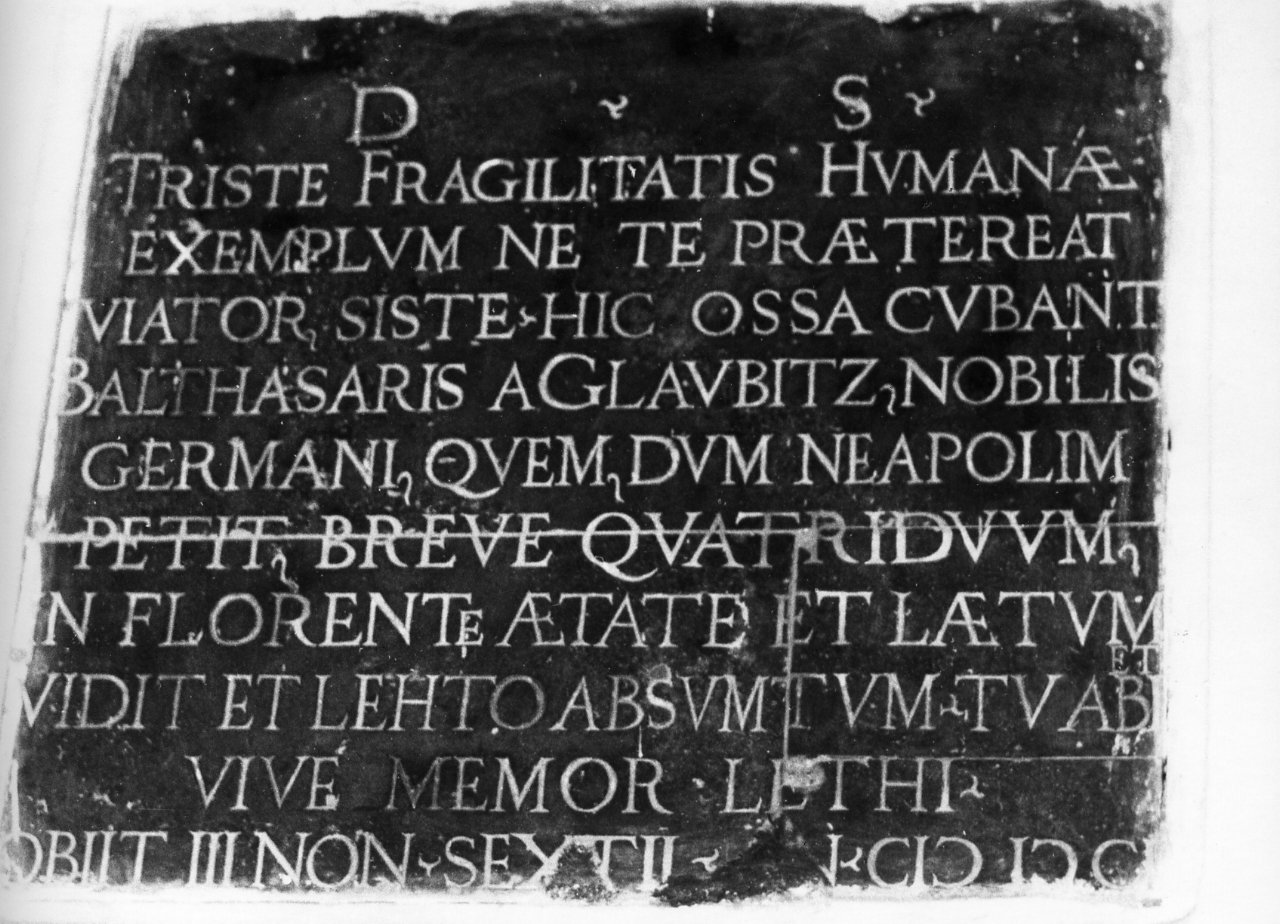 D · S ·
TRISTE FRAGILITATIS HVMANÆ
EXEMPLVM NE TE PRÆTEREAT
VIATOR, SISTE · HIC OSSA CVBANT
BALTHASARIS A GLAVBITZ, NOBILIS
GERMANI, QVEM, DVM NEAPOLIM
PETIT, BREVE QVATRIDVVM,
IN FLORENTE ÆTATE ET LÆTVM
VIDIT ET LEHTO ABSVMTVM · TV ABI
ET
VIVE MEMOR LETHI ·
OBIIT III NON · SEXTIL ·